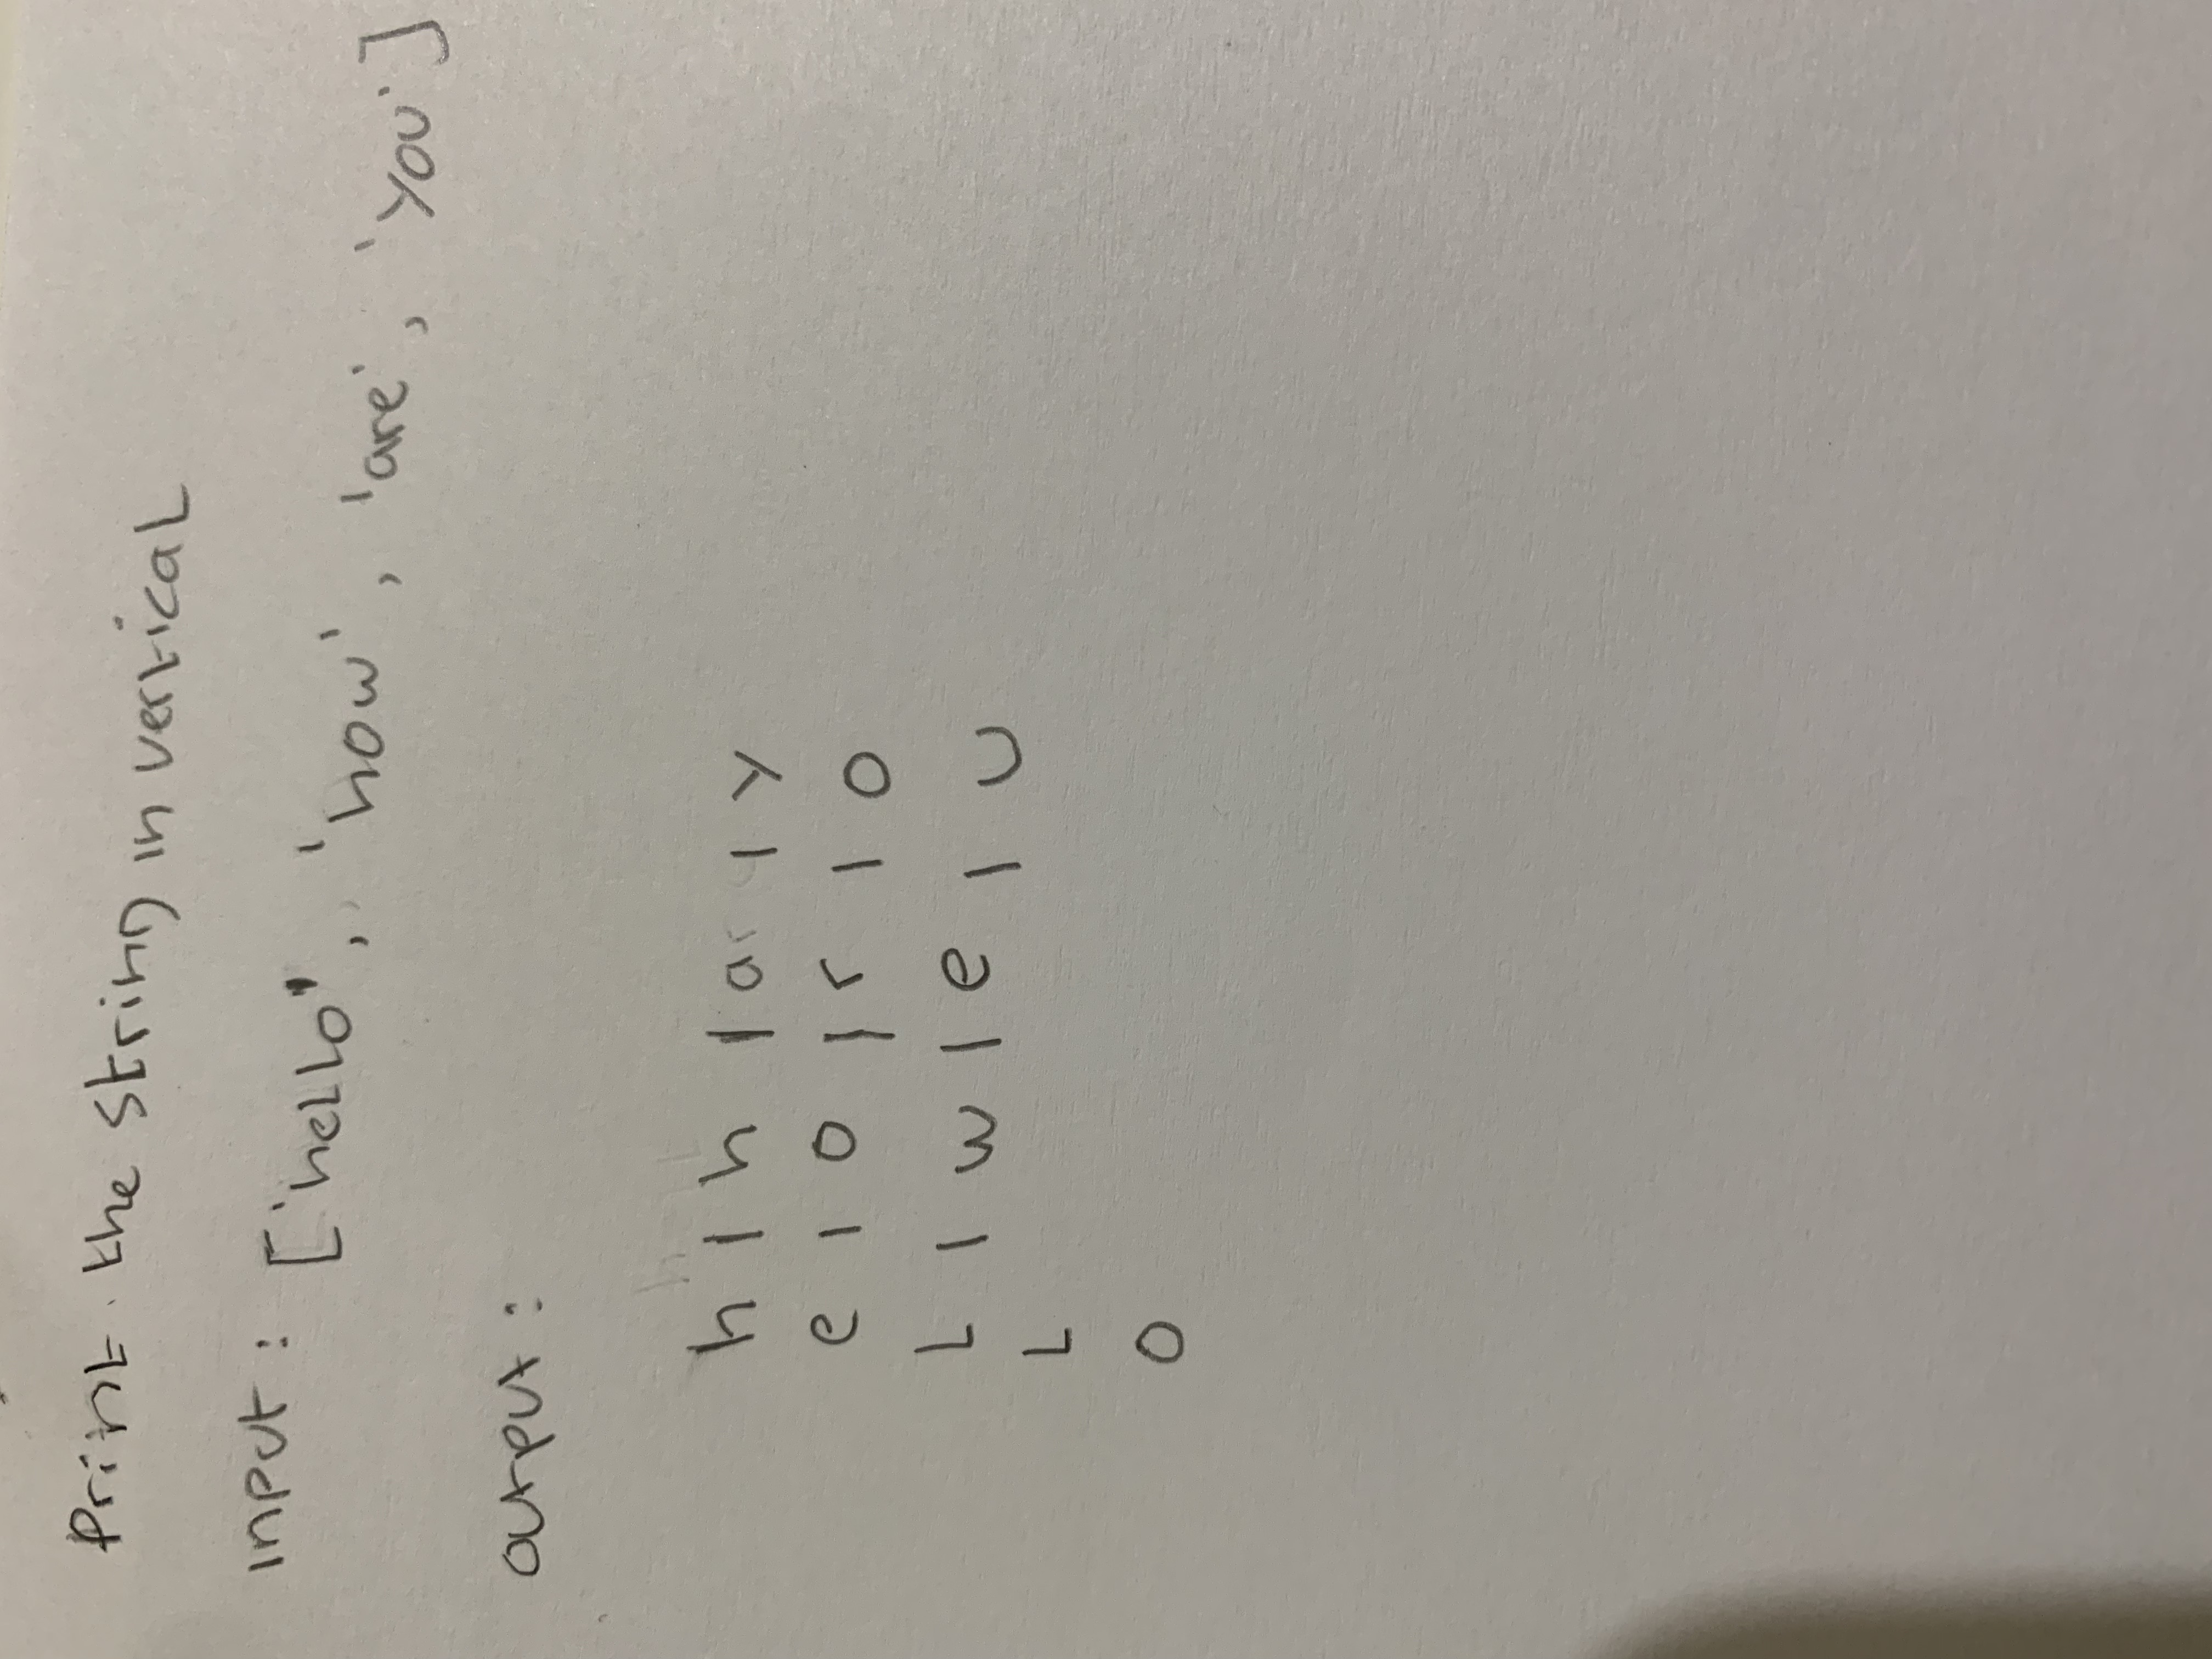 Print the string in vertical
input : ['hello", 'how', 'are', 'you']
output :
h | h | a | y
e | o | r | o
L | w | e | u
L
o